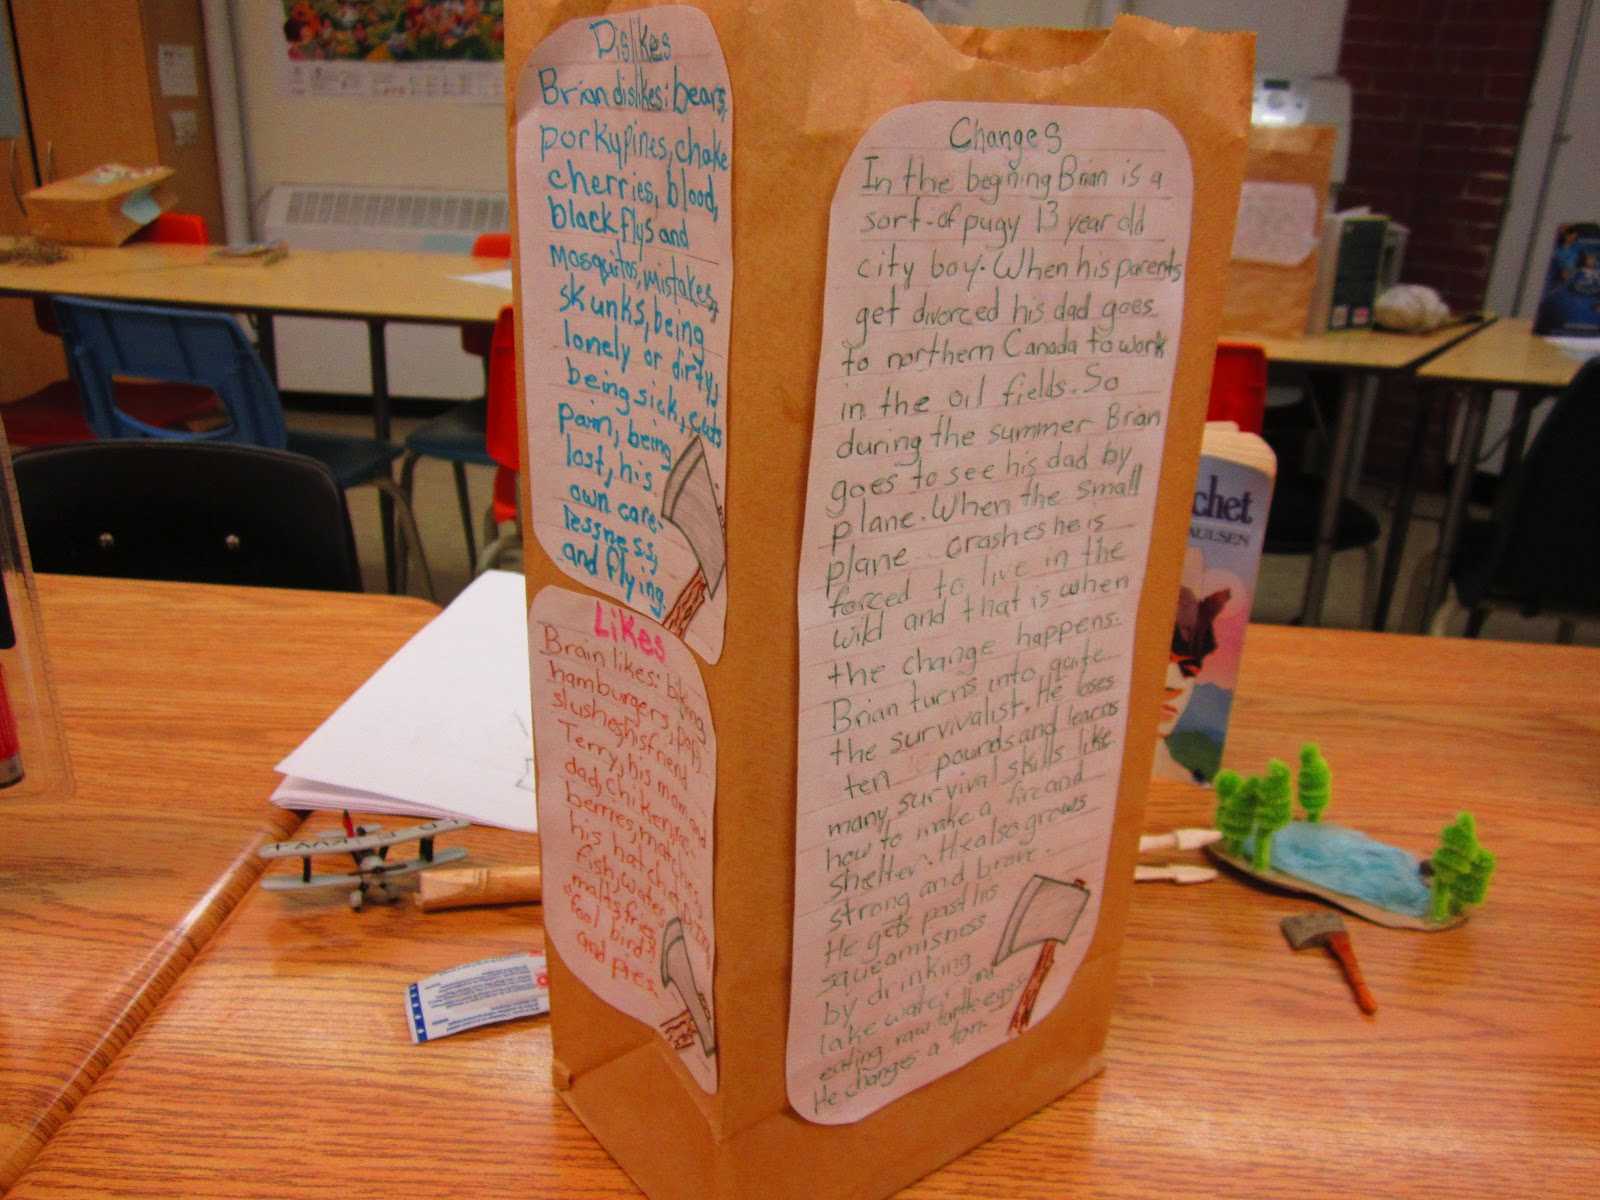 Dislikes
Brian dislikes: bears,
porkypines, choke
cherries, blood,
black flys and
mosquitos, mistakes,
skunks, being
lonely or dirty,
being sick, cuts
pain, being
lost, his
own care-
lessness,
and flying.
Likes
Brain likes: biking
hamburgers, pop,
slushes, his friend
Terry, his mom and
dad, chiken, rasp-
berries, matches,
his hatchet, DIng
fish, water
malts, fries
fool birds
and pies
Changes
In the begining Brian is a
sort-of pugy 13 year old
city boy. When his parents
get divorced his dad goes
to northern Canada to work
in the oil fields. So
during the summer Brian
goes to see his dad by
plane. When the small
plane crashes he is
forced to live in the
wild and that is when
the change happens.
Brian turns into quite
the survivalist. He loses
ten pounds and learns
many survival skills like
how to make a fire and
shelter. He also grows
strong and brave.
He gets past his
squeamisness
by drinking
lake water and
eating raw turtle eggs
He changes a ton.
chet
AULSEN